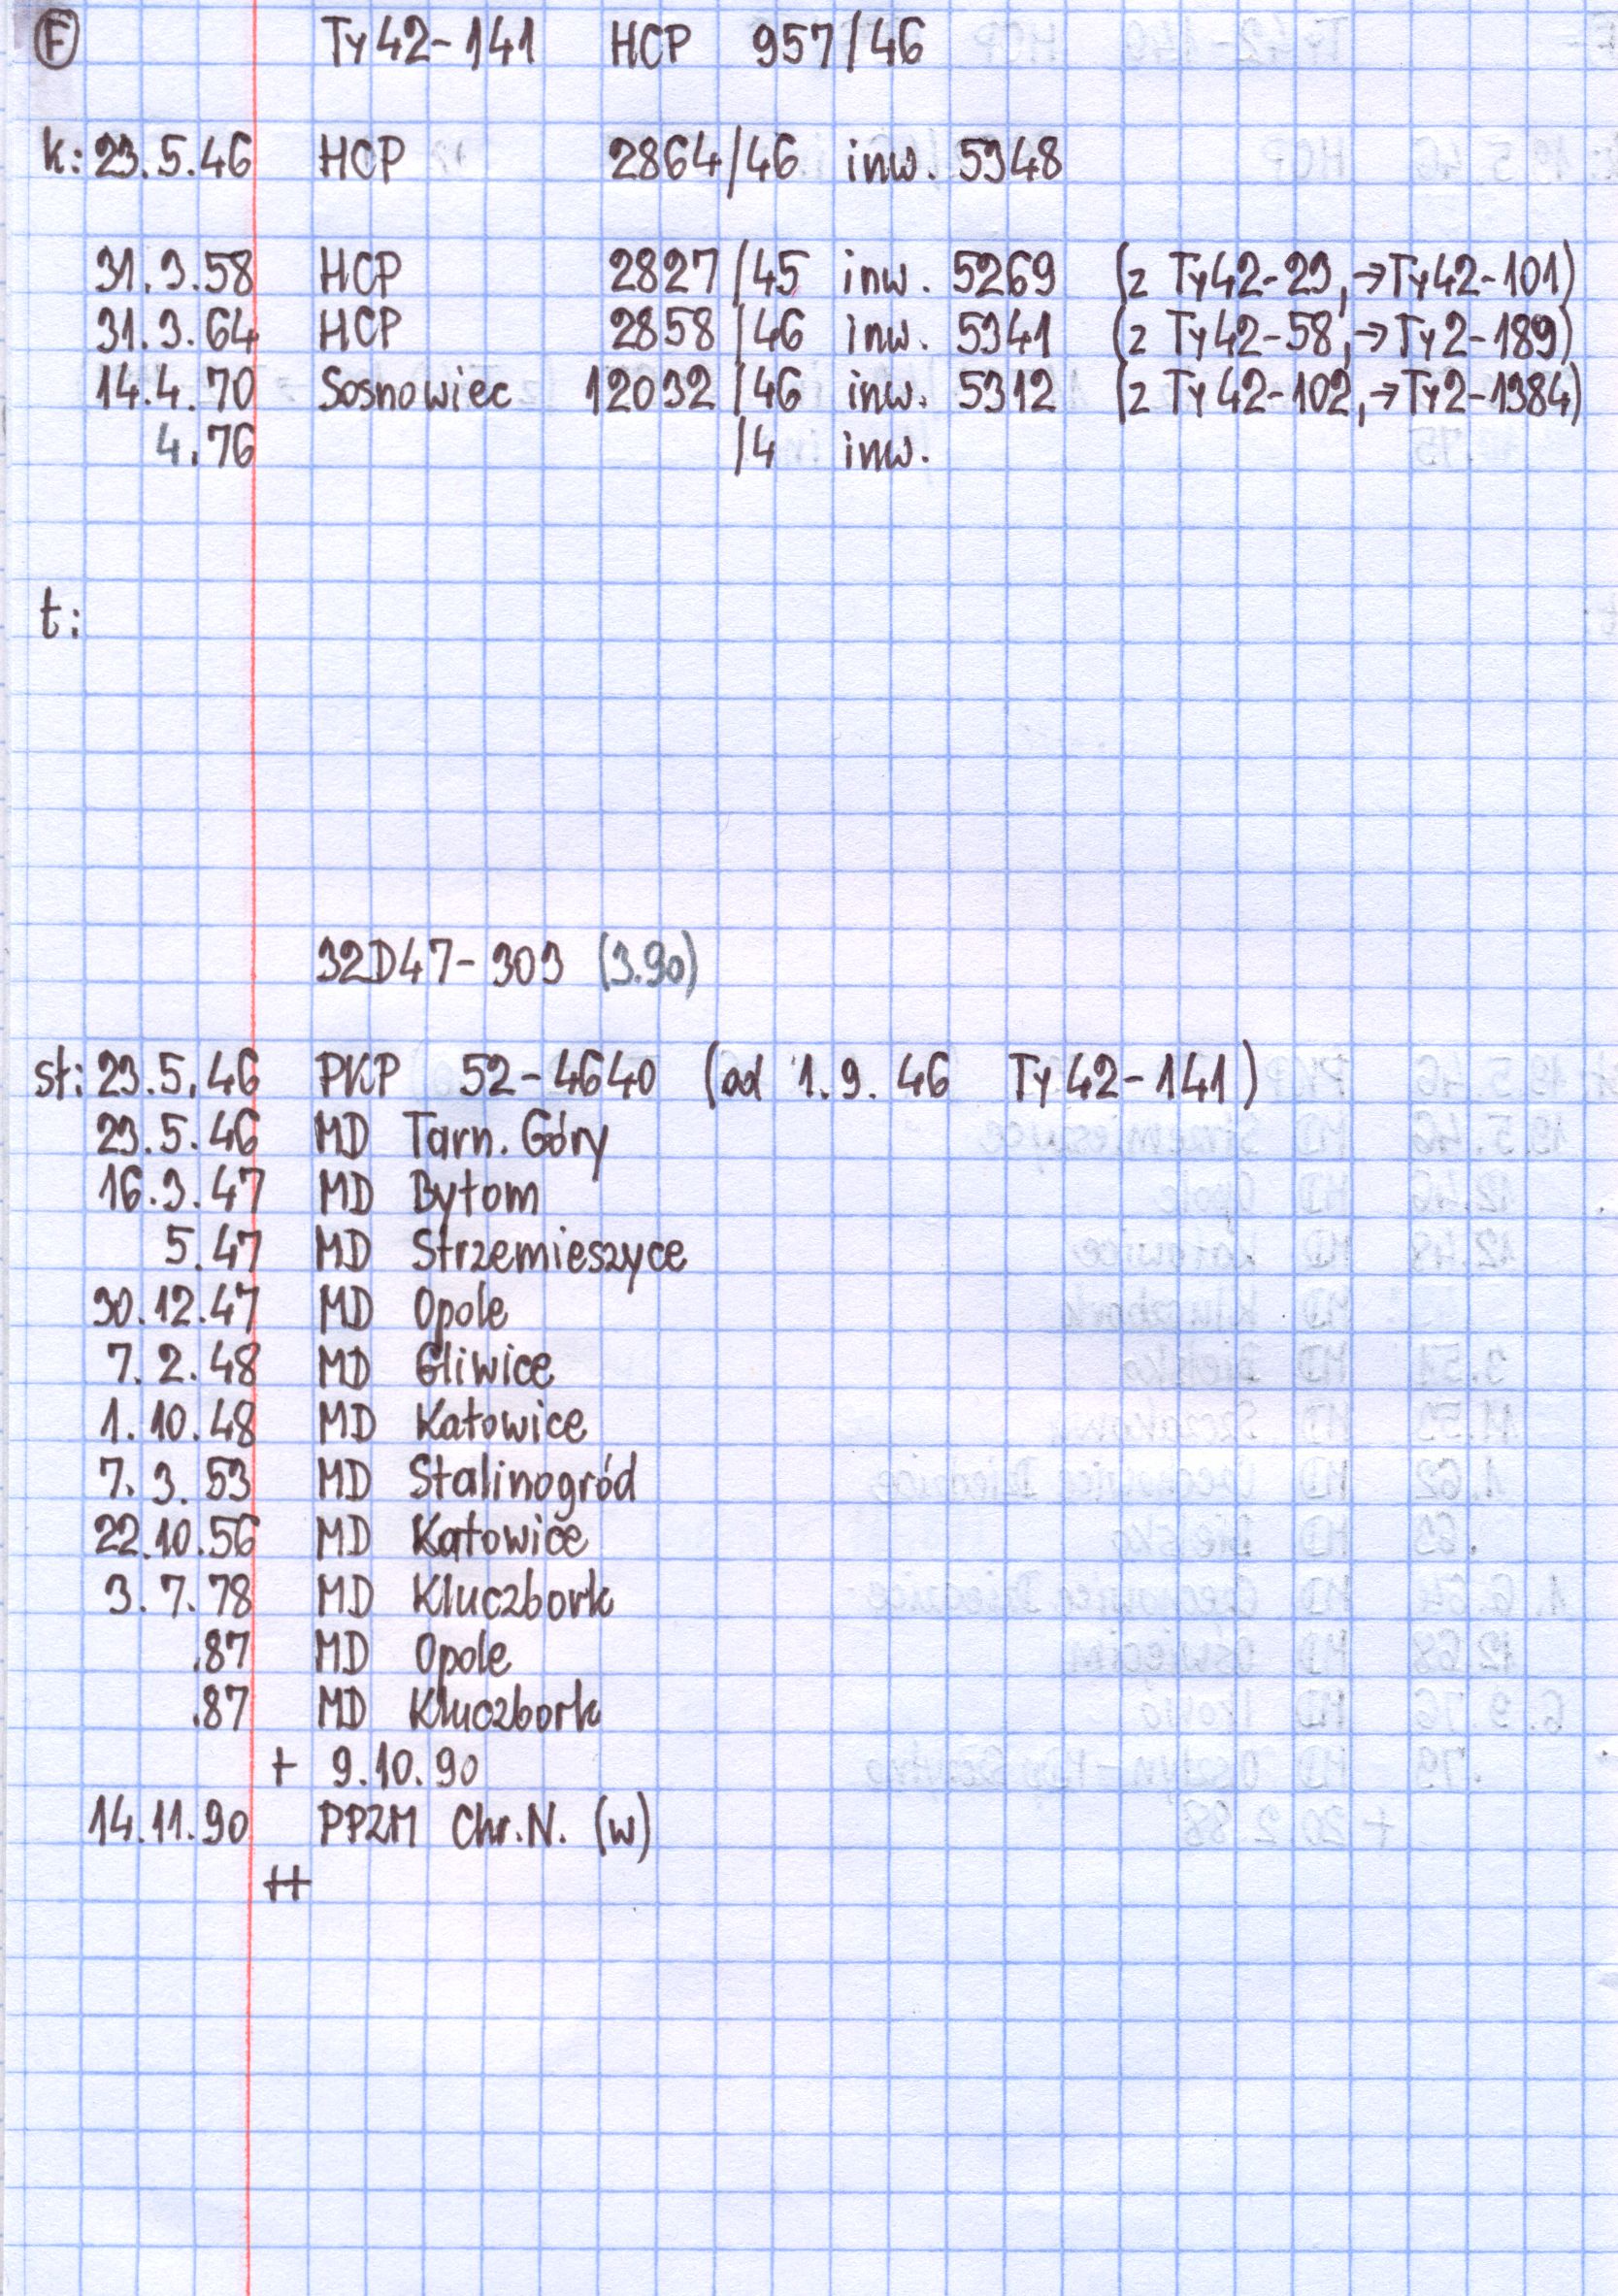 F Ty42-141 HCP 957/46
k: 23.5.46 HCP 2864/46 inw. 5348
31.3.58 HCP 2827/45 inw. 5269 (z Ty42-29, →Ty42-101)
31.3.64 HCP 2858/46 inw. 5341 (z Ty42-58, →Ty2-189)
14.4.70 Sosnowiec 12032/46 inw. 5312 (z Ty42-102, →Ty2-1384)
4.76 /4 inw.
t:
32D47-303 (3.90)
st: 23.5.46 PKP 52-4640 (od 1.9.46 Ty42-141)
23.5.46 MD Tarn. Góry
16.3.47 MD Bytom
5.47 MD Strzemieszyce
30.12.47 MD Opole
7.2.48 MD Gliwice
1.10.48 MD Katowice
7.3.53 MD Stalinogród
22.10.56 MD Katowice
3.7.78 MD Kluczbork
.87 MD Opole
.87 MD Kluczbork
+ 9.10.90
14.11.90 PPZM Chr.N. (w)
++